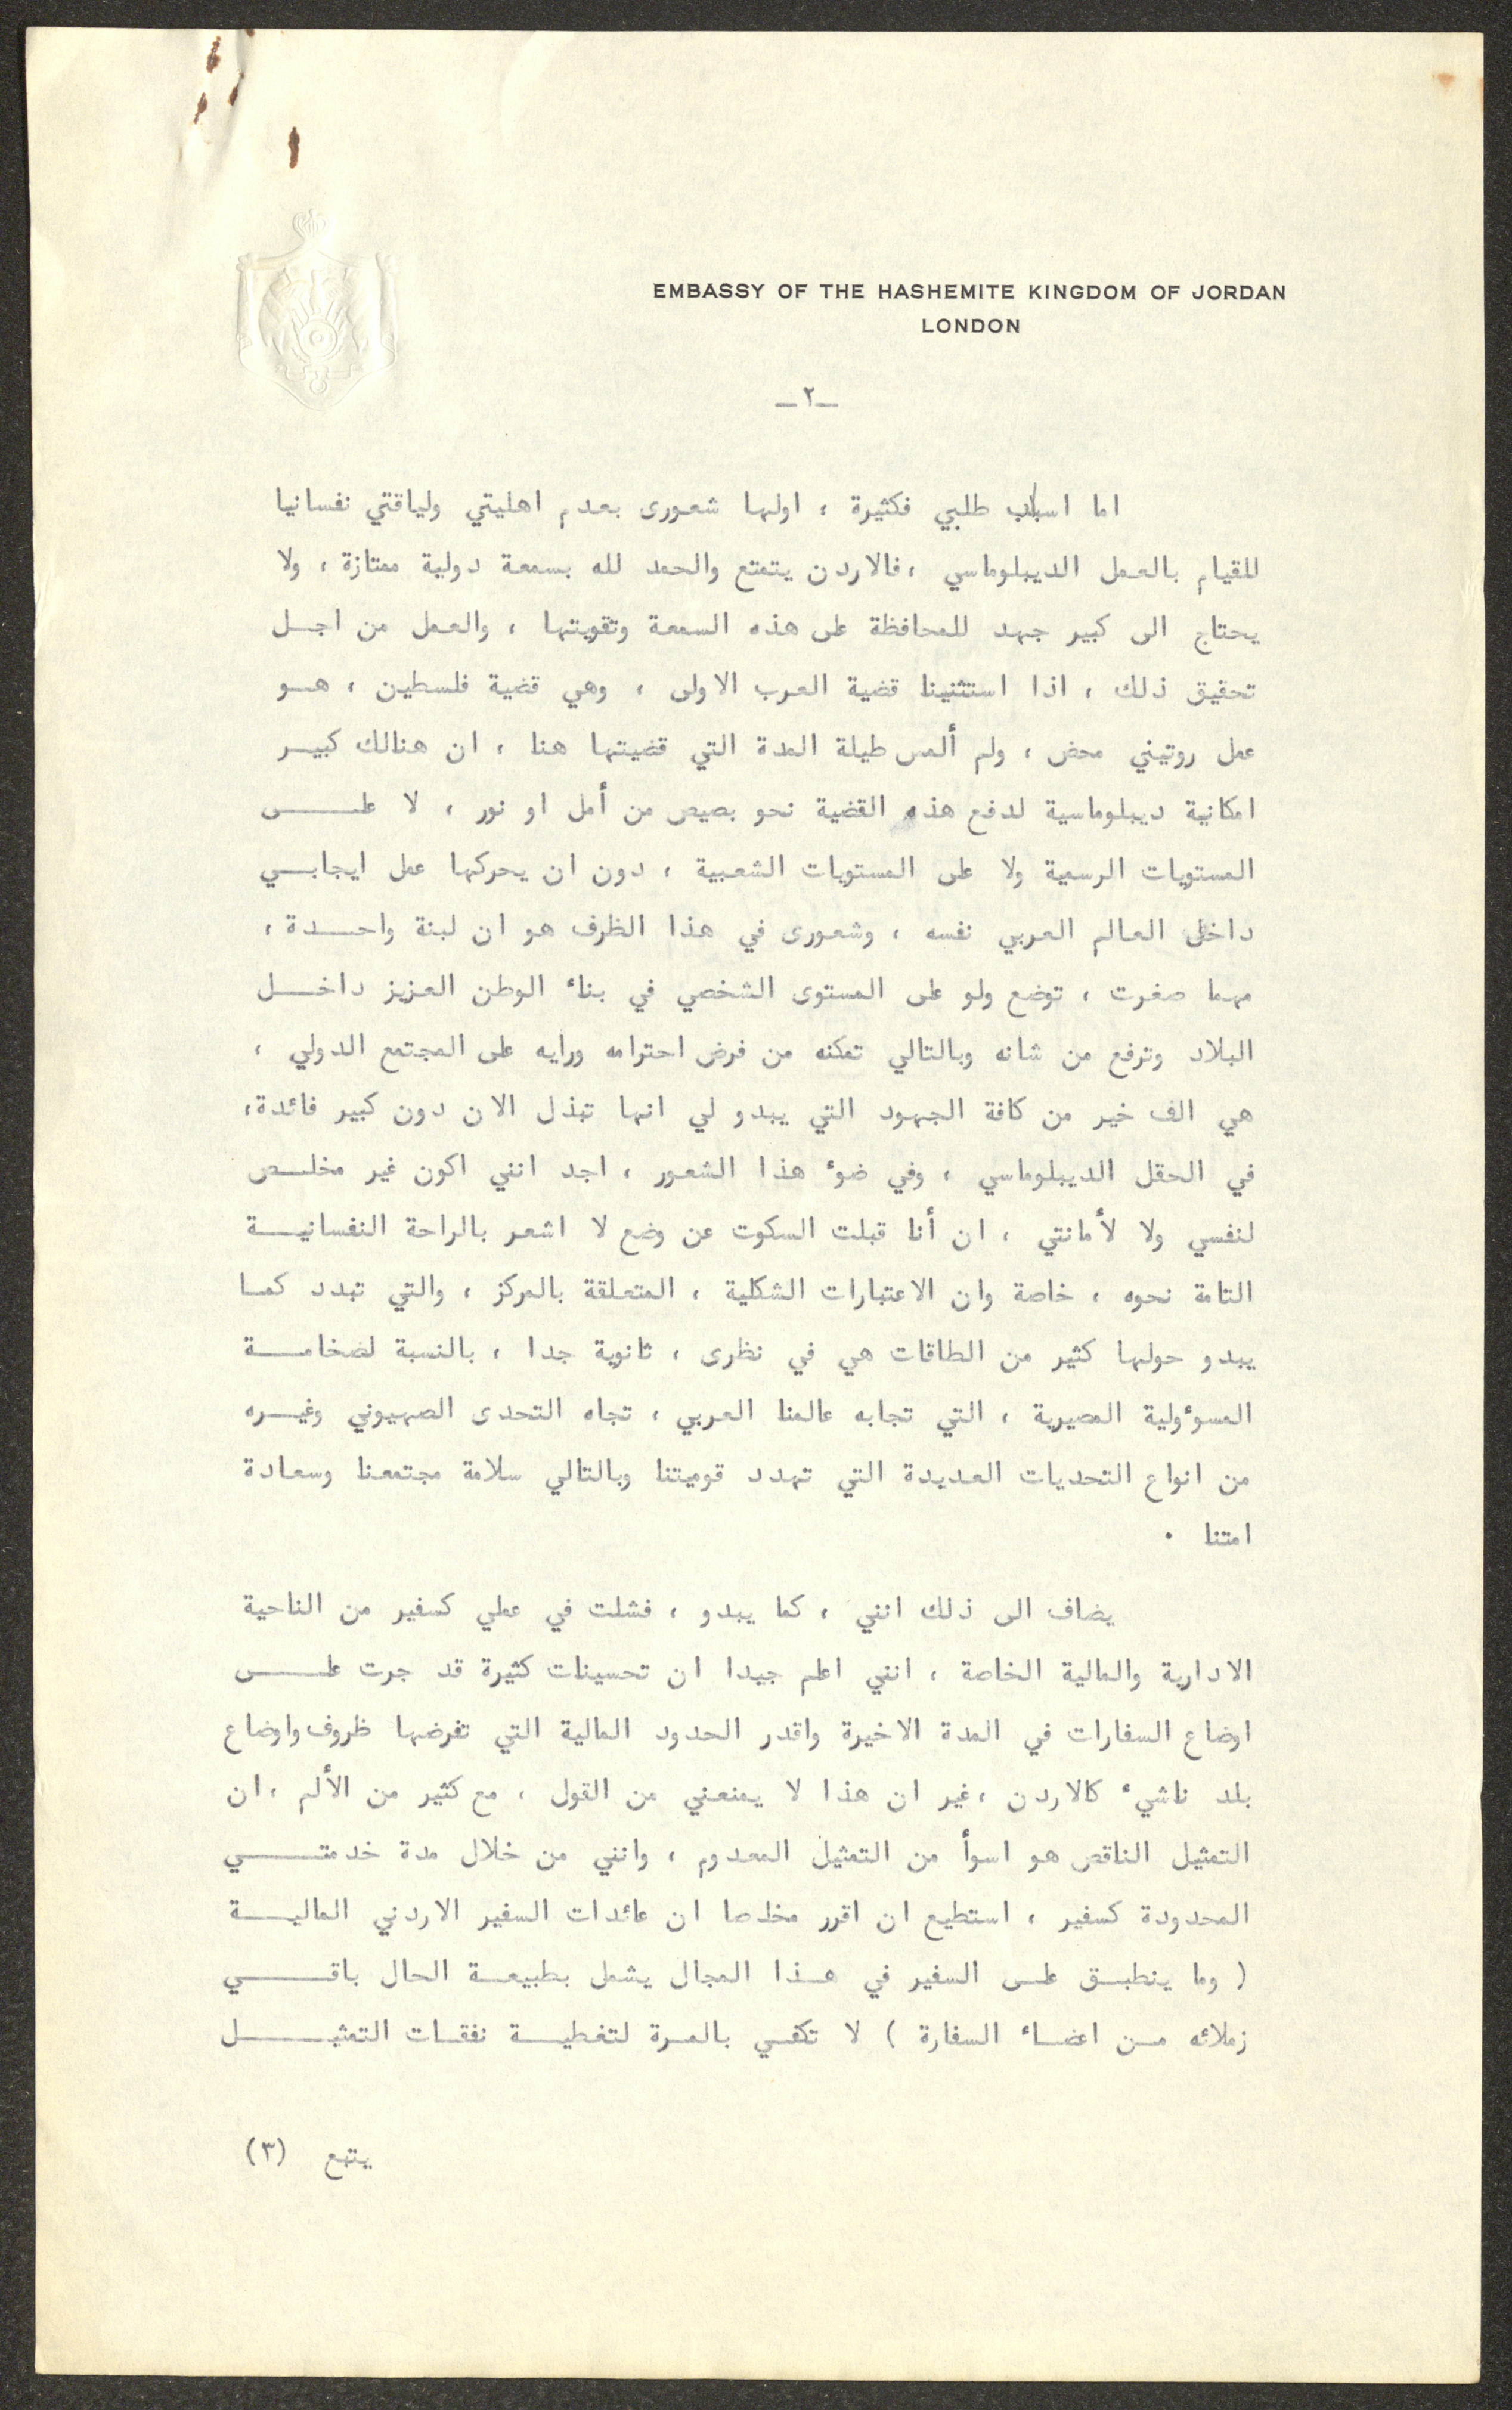 EMBASSY OF THE HASHEMITE KINGDOM OF JORDAN
LONDON
ـ٢ـ
اما اسباب طلبي فكثيرة ، اولها شعورى بعدم اهليتي ولياقتي نفسانيا
للقيام بالعمل الديبلوماسي ، فالاردن يتمتع والحمد لله بسمعة دولية ممتازة ، ولا
يحتاج الى كبير جهد للمحافظة على هذه السمعة وتقويتها ، والعمل من اجل
تحقيق ذلك ، اذا استثنينا قضية العرب الاولى ، وهي قضية فلسطين ، هو
عمل روتيني محض ، ولم ألمس طيلة المدة التي قضيتها هنا ، ان هنالك كبير
امكانية ديبلوماسية لدفع هذه القضية نحو بصيص من أمل او نور ، لا على
المستويات الرسمية ولا على المستويات الشعبية ، دون ان يحركها عمل ايجابي
داخل العالم العربي نفسه ، وشعورى في هذا الظرف هو ان لبنة واحدة ،
مهما صغرت ، توضع ولو على المستوى الشخصي في بناء الوطن العزيز داخل
البلاد وترفع من شانه وبالتالي تمكنه من فرض احترامه ورايه على المجتمع الدولي ،
هي الف خير من كافة الجهود التي يبدو لي انها تبذل الان دون كبير فائدة،
في الحقل الديبلوماسي ، وفي ضوء هذا الشعور ، اجد انني اكون غير مخلص
لنفسي ولا لأمانتي ، ان أنا قبلت السكوت عن وضع لا اشعر بالراحة النفسانية
التامة نحوه ، خاصة وان الاعتبارات الشكلية ، المتعلقة بالمركز ، والتي تبدد كما
يبدو حولها كثير من الطاقات هي في نظرى ، ثانوية جدا ، بالنسبة لضخامة
المسوءولية المصيرية ، التي تجابه عالمنا العربي ، تجاه التحدى الصهيوني وغيره
من انواع التحديات العديدة التي تهدد قوميتنا وبالتالي سلامة مجتمعنا وسعادة
امتنا .
يضاف الى ذلك انني ، كما يبدو ، فشلت في عملي كسفير من الناحية
الادارية والمالية الخاصة ، انني اعلم جيدا ان تحسينات كثيرة قد جرت على
اوضاع السفارات في المدة الاخيرة واقدر الحدود المالية التي تفرضها ظروف واوضاع
بلد ناشيء كالاردن ، غير ان هذا لا يمنعني من القول ، مع كثير من الألم ، ان
التمثيل الناقص هو اسوأ من التمثيل المعدوم ، وانني من خلال مدة خدمتي
المحدودة كسفير ، استطيع ان اقرر مخلصا ان عائدات السفير الاردني المالية
( وما ينطبق على السفير في هذا المجال يشمل بطبيعة الحال باقي
زملائه من اعضاء السفارة ) لا تكفي بالمرة لتغطية نفقات التمثيل
يتبع (٣)